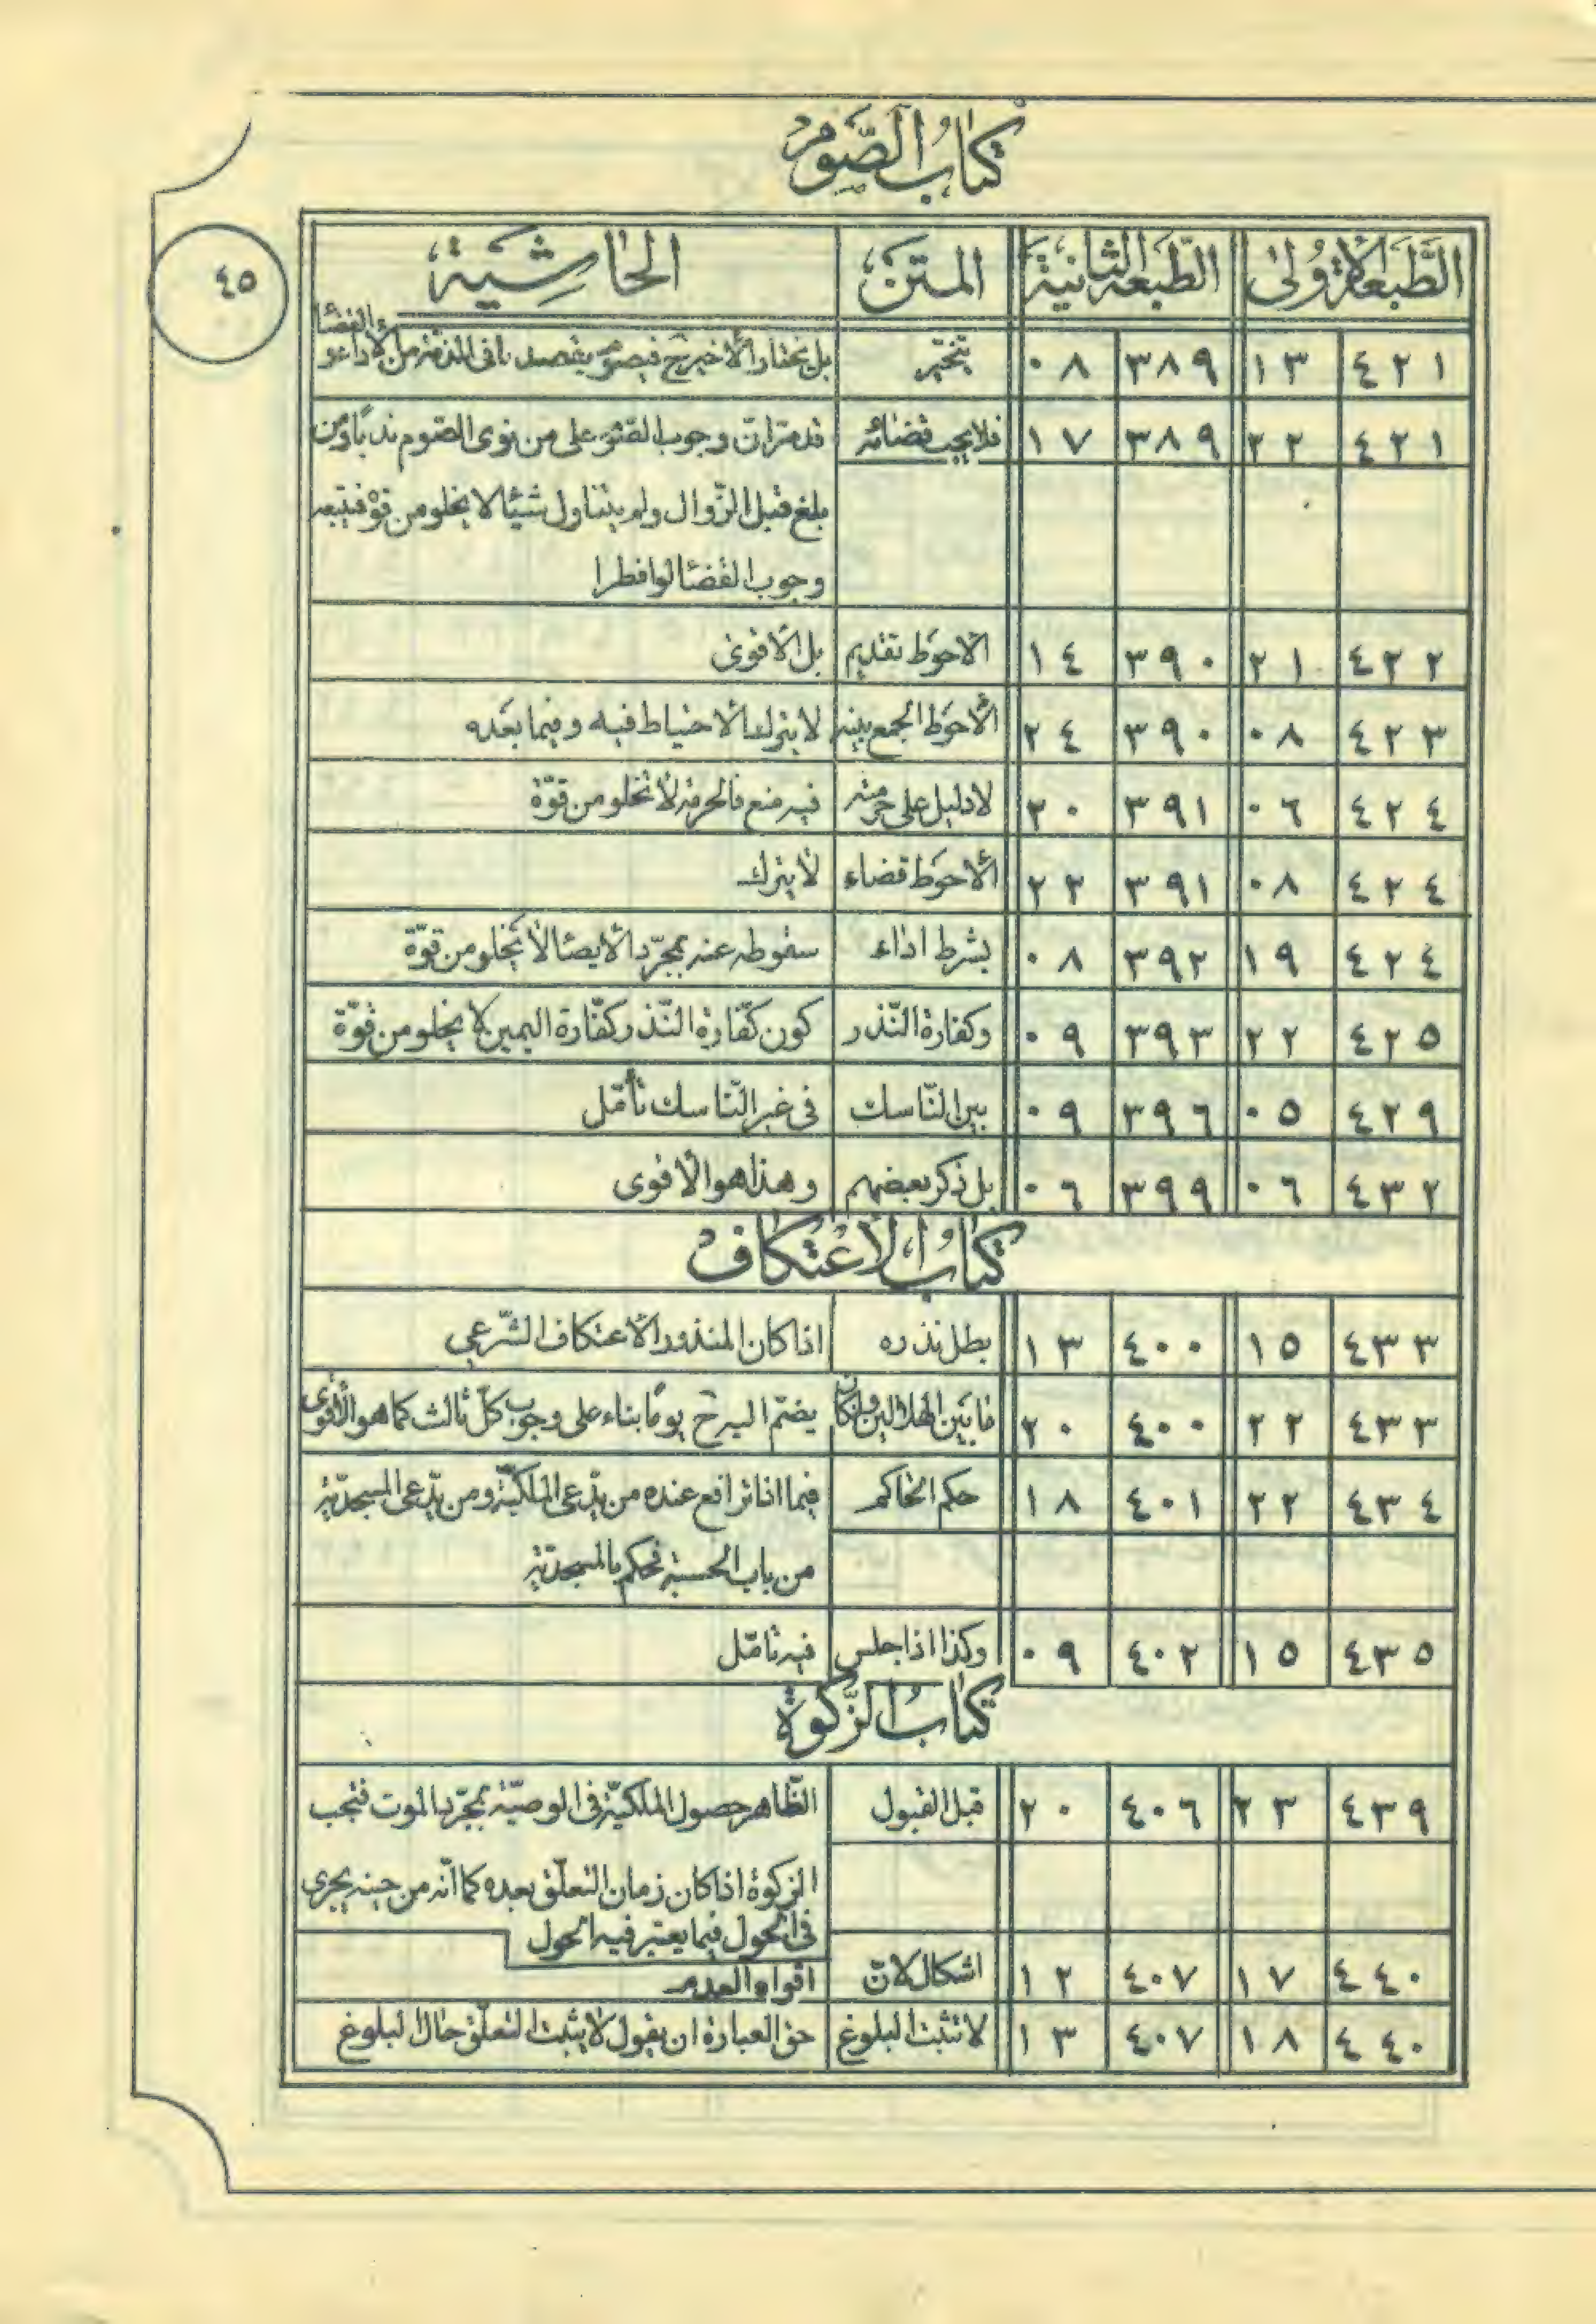 كتاب الصّوم
٤٥
الطّبعة الاولى الطّبعة الثانية المتن الحاشية
٤٢١ ١٣ ٣٨٩ ٠٨ يتخيّر بل يختار الأخير ح فيصوم يقصد ما فى الذمّة من الأداء و القضا
٤٢١ ٢٢ ٣٨٩ ١٧ فلا يجب قضائه قد مرّ انّ وجوب الصّوم على من نوى الصّوم ندبًا و من
بلغ قبل الزّوال ولم يتناول شيئا لا يخلو من قوّة فيتبعه
وجوب القضا لو افطرا
٤٢٢ ٢١ ٣٩٠ ١٤ الاحوط تقديم بل الأقوى
٤٢٣ ٠٨ ٣٩٠ ٢٤ الأحوط الجمع بينه لا يترك الاحتياط فيه و فيما بعده
٤٢٤ ٠٦ ٣٩١ ٢٠ لا دليل على حرمته فيه منع فالحرمة لا تخلو من قوّة
٤٢٤ ٠٨ ٣٩١ ٢٢ الأحوط قضاء لا يترك
٤٢٤ ١٩ ٣٩٢ ٠٨ بشرط اداء سقوطه عنه بمجرّد الأيصا لا يخلو من قوّة
٤٢٥ ٢٢ ٣٩٣ ٠٩ و كفارة النّذر كون كفّارة النّذر كفّارة اليمين لا يخلو من قوّة
٤٢٩ ٠٥ ٣٩٦ ٠٩ بين النّاسك فى غير النّاسك تأمّل
٤٣٢ ٠٦ ٣٩٩ ٠٦ بل ذكر بعضهم و هذا هو الأقوى
كتاب الأعتكاف
٤٣٣ ١٥ ٤٠٠ ١٣ بطل نذره اذا كان المنذور الأعتكاف الشّرعي
٤٣٣ ٢٢ ٤٠٠ ٢٠ ما بين الهلالين و ان كان يضمّ اليه ح يومًا بناء على وجوب كلّ ثالث كما هو الأقوى
٤٣٤ ٢٢ ٤٠١ ١٨ حكم الحاكم فيما اذا ترافع عنده من يدّعى الملكيّة و من يدّعى المسجديّة
من باب الحسبة فحكم بالمسجديّة
٤٣٥ ١٥ ٤٠٢ ٠٩ و كذا اذا جلس فيه تامّل
كتاب الزّكوة
٤٣٩ ٢٣ ٤٠٦ ٢٠ قبل القبول الظّاهر حصول الملكيّة فى الوصيّة بمجرّد الموت فتجب
الزكوة اذا كان زمان التعلّق بعده كما انّه من حينه يجرى
فى الحول فيما يعتبر فيه الحول
٤٤٠ ١٧ ٤٠٧ ١٢ اشكال لانّ اقواه العدم
٤٤٠ ١٨ ٤٠٧ ١٣ لا تثبت البلوغ حق العبارة ان يقول لا يثبت التعلّق حال البلوغ